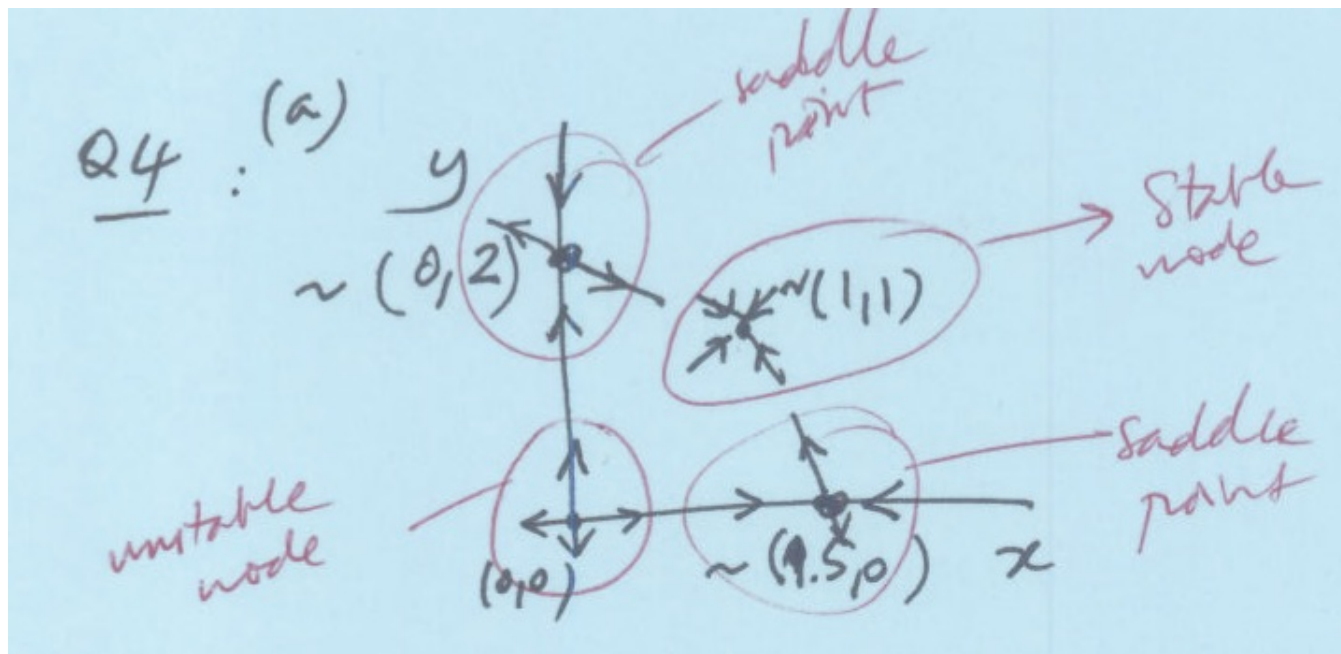 Q4 : (a)
y
saddle
point
~ (0,2)
~(1,1)
Stable
node
unstable
node
(0,0)
~ (1.5,0)
x
saddle
point